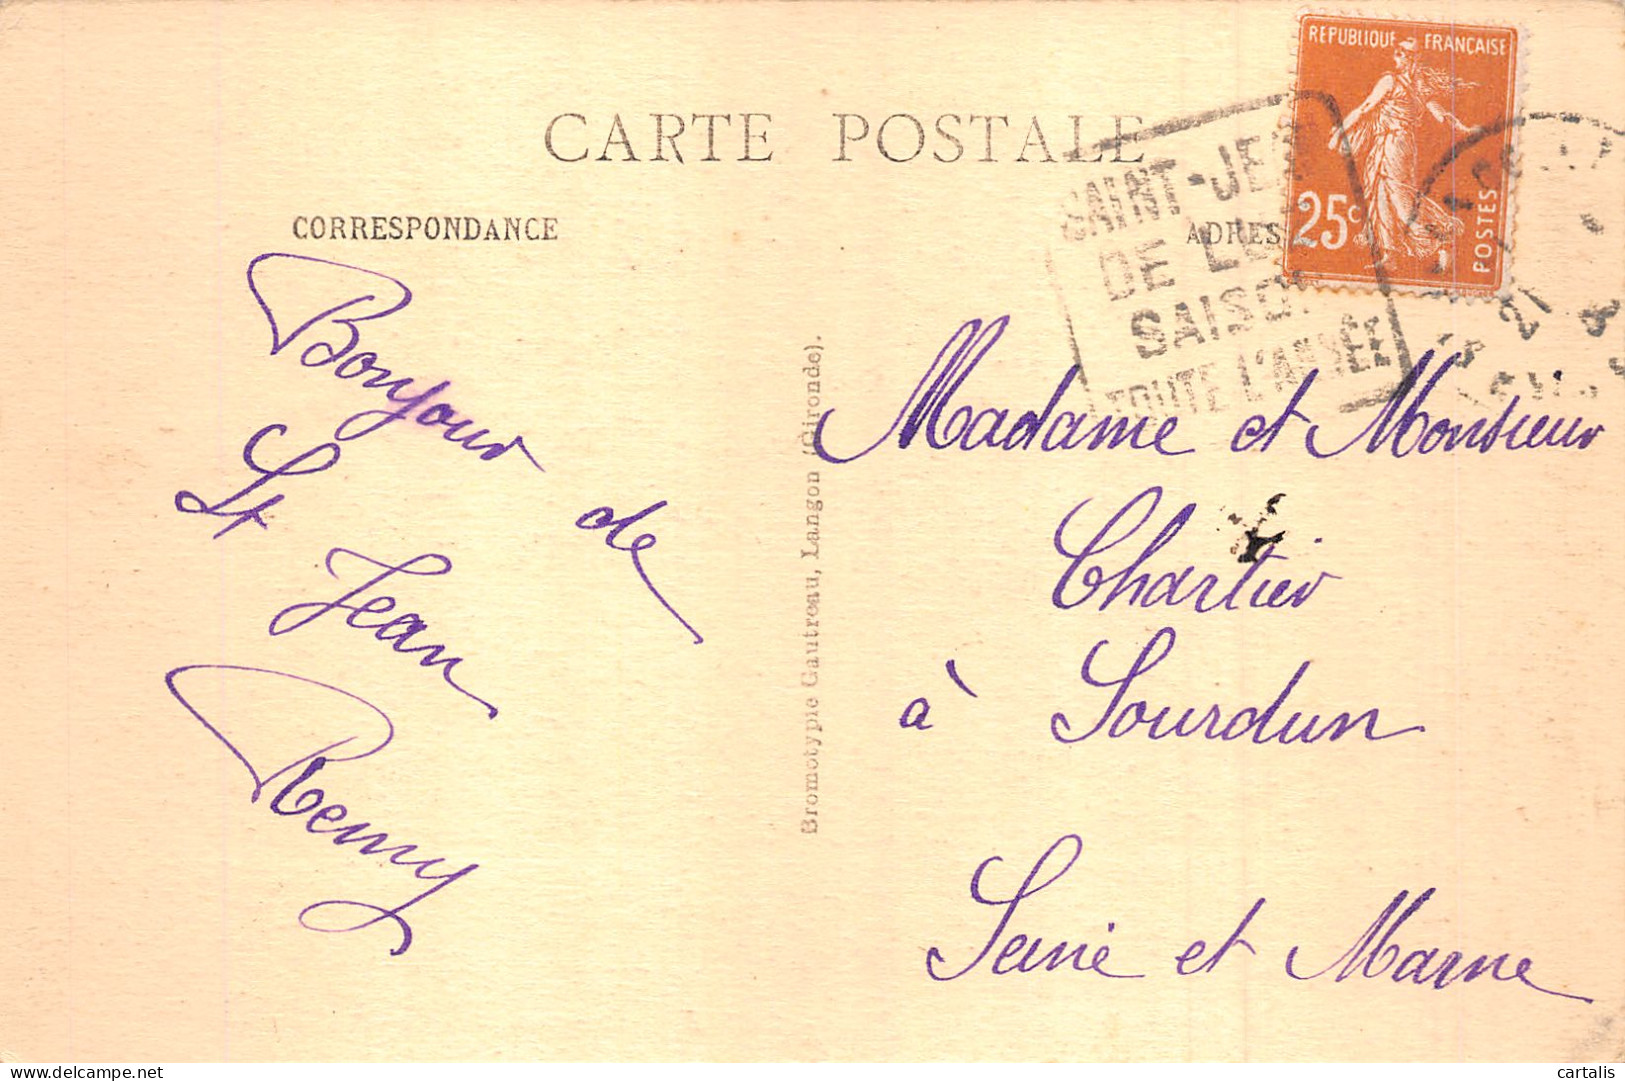 CARTE POSTALE
CORRESPONDANCE
ADRES
REPUBLIQUE FRANÇAISE
25c
POSTES
SAINT-JEA
DE L
SAISO
TOUTE L'ANNÉE
21
Bonjour de
St Jean
Remy
Bromotypie Gautreau, Langon (Gironde).
Madame et Monsieur
Chartier
à Sourdun
Seine et Marne
delcampe.net
cartalis